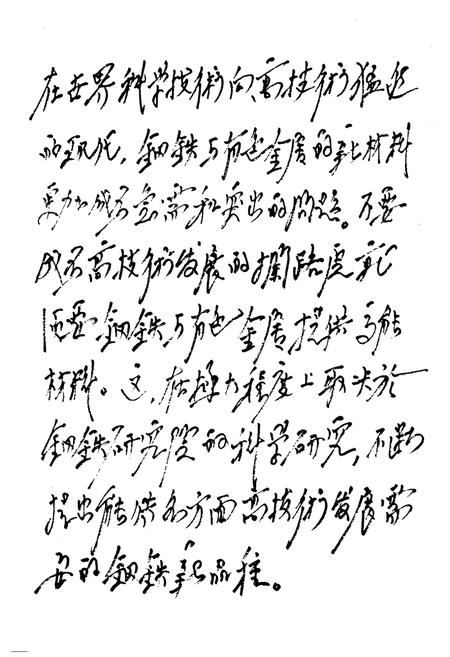 在世界科学技術向高技術猛進
的现代，鋼鉄与有色金属的新材料
更加成为急需和突出的问题。不要
成为高技術发展的拦路虎就
需要鋼鉄与有色金属提供高能
材料。这，在極大程度上取决於
鋼鉄研究院的科学研究，不断
提出能供各方面高技術发展需
要的鋼鉄新品種。